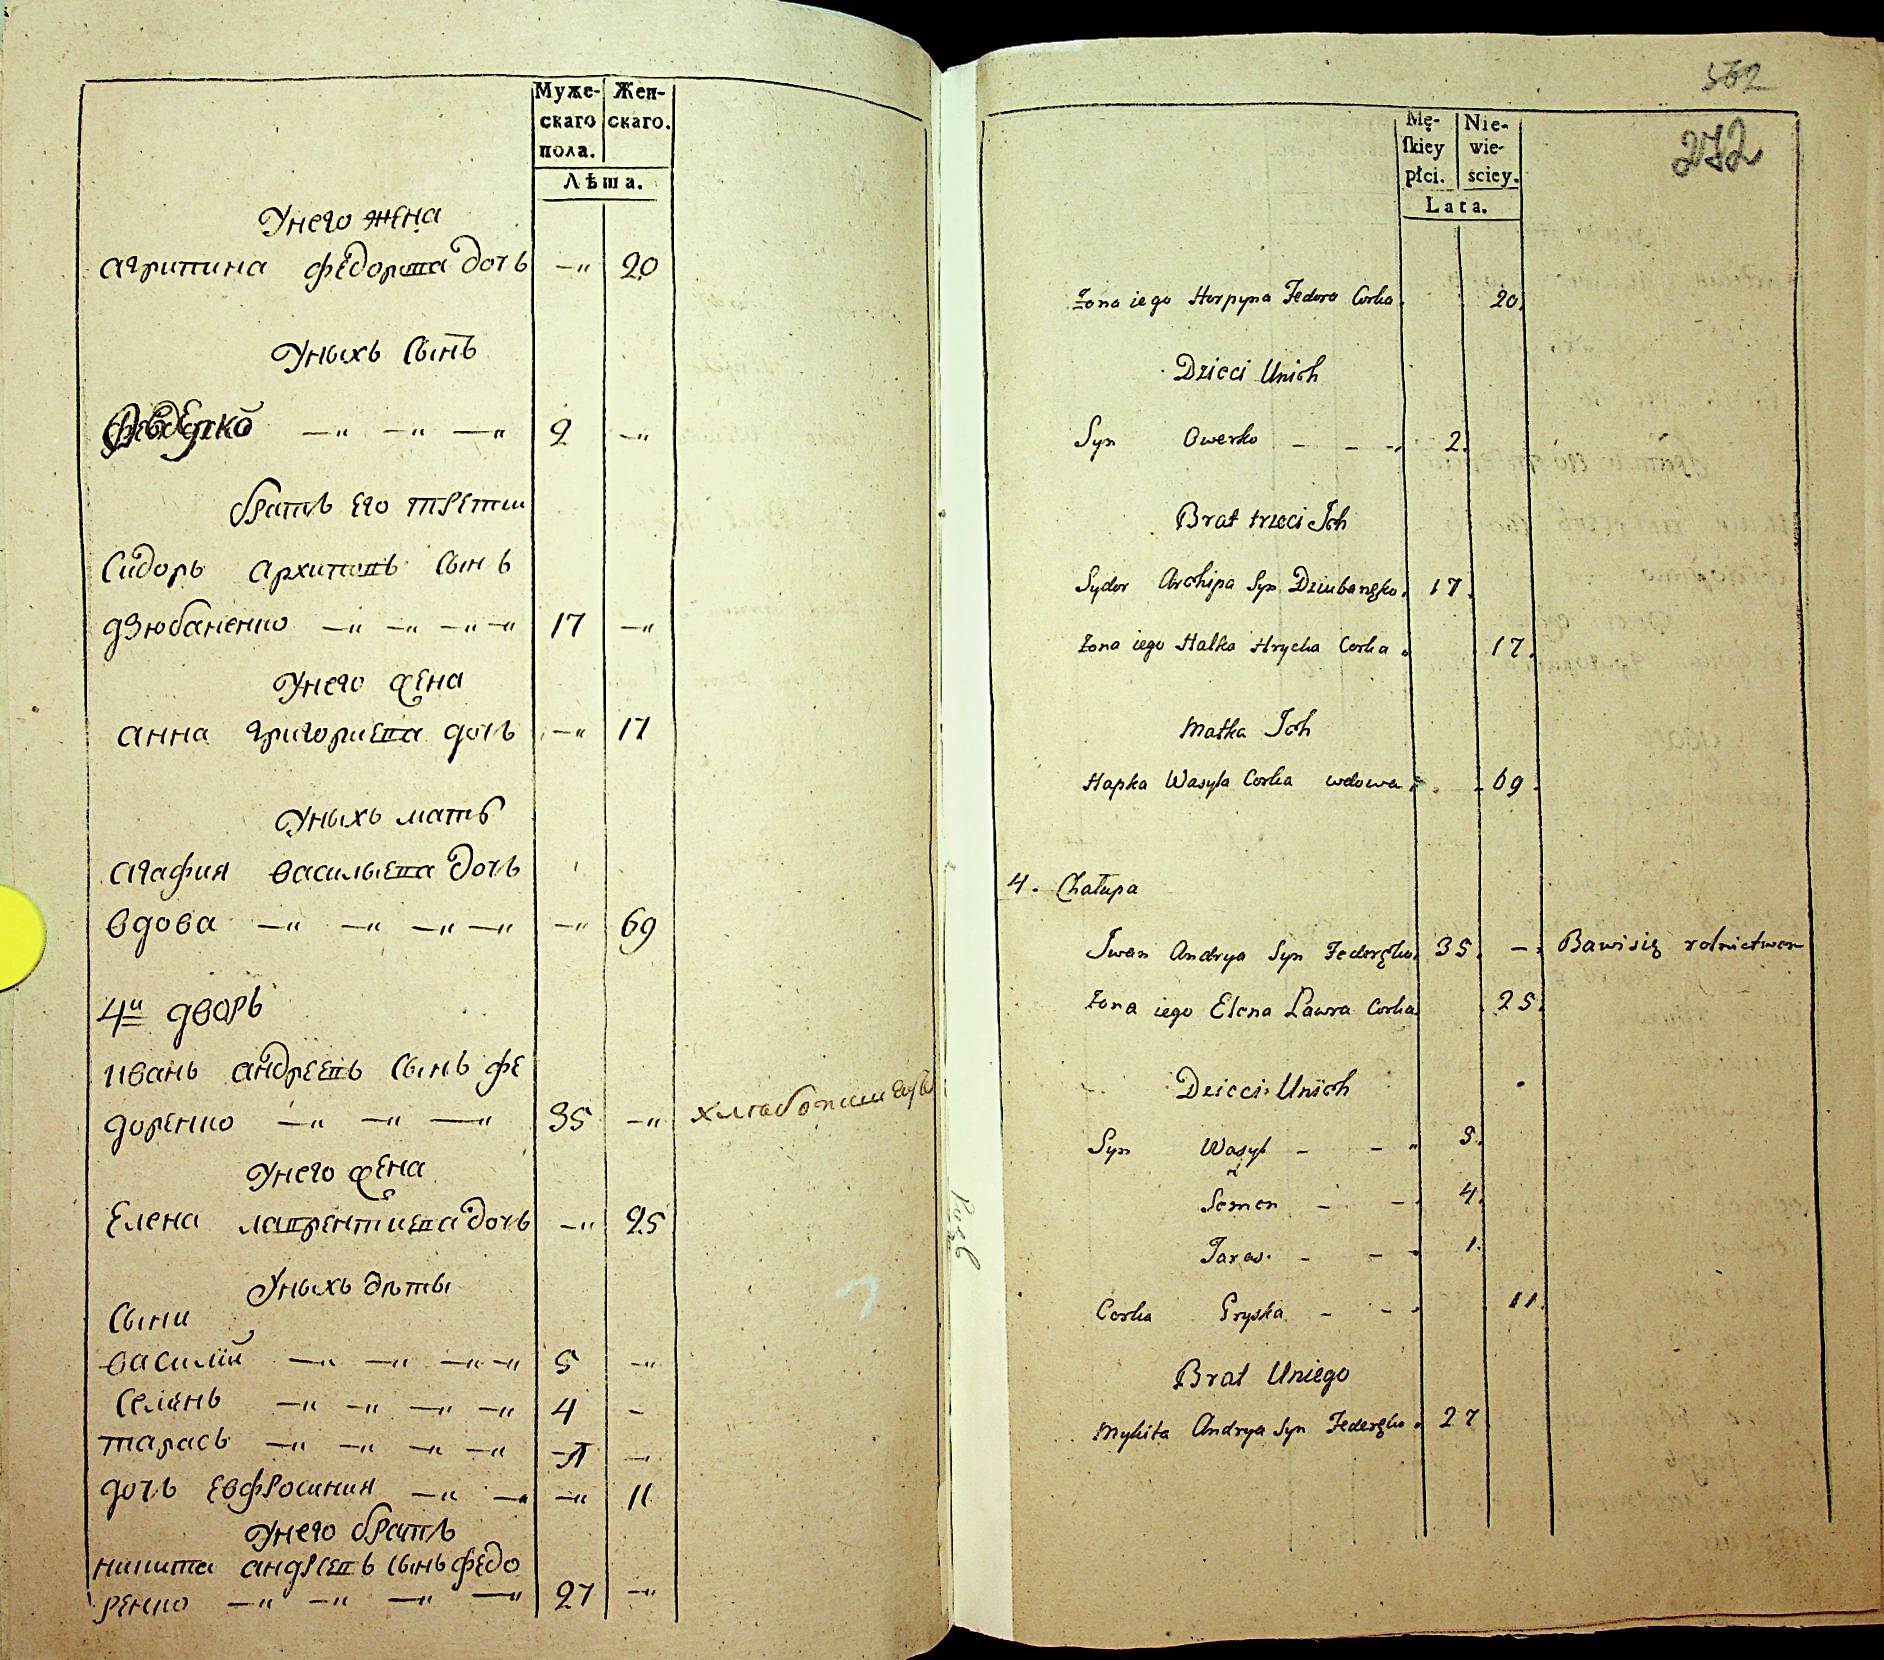 Муже- Жен-
скаго скаго.
пола.
Лѣта.
Унего жена
агрипина федорова дочь —„ 20
Уныхъ сынъ
—„ —„ —„ 2 —„
братъ его трети
Сидоръ архиповъ сынъ
дзюбаненко —„ —„ —„ —„ 17 —„
Унего жена
анна григориева дочь —„ 17
Уныхъ мать
агафия васильева дочь
вдова —„ —„ —„ —„ —„ 69
4й дворъ
иванъ андреевъ сынъ фе
доренко —„ —„ —„ 35 —„ хлебопашецъ
Унего жена
Елена лаврентиева дочь —„ 25
Уныхъ дѣты
Сыни
василий —„ —„ —„ —„ 5 —„
Семенъ —„ —„ —„ —„ 4 -
тарасъ —„ —„ —„ —„ —
дочь евфросиния —„ —„ —„ 11
Унего братъ
никита андреевъ сынъ федо
ренко —„ —„ —„ —„ 27 —„
272
Mę- Nie-
ſkiey wie-
płci. sciey.
Lata.
Żona iego Horpyna Fedora Corka. 20.
Dzieci Unich
Syn Owerko - - -. 2.
Brat trzeci Ich
Sydor Archipa Syn Dziubanęko. 17.
Żona iego Halka Hrycka Corka. 17.
Matka Ich
Hapka Wasyla Corka wdowa. 69.
4. Chałupa
Iwan Andrya Syn Federęko. 35. -. Bawi się rolnictwem
Żona iego Elena Lawra Corka 25.
Dzieci Unich
Syn Wasyl - - „ 5.
Semen - -. 4.
Taras. - -. 1.
Corka Pryska - -. 11.
Brat Uniego
Mykita Andrya Syn Federęko. 27